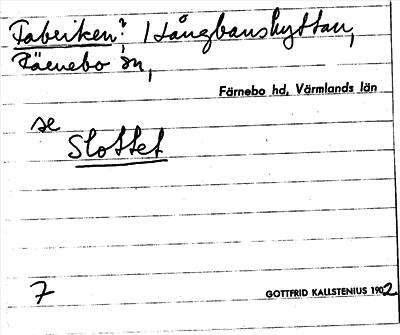 Fabriken? i Långbanshyttan,
Färnebo sn,
Färnebo hd, Värmlands län
se
Slottet
7
GOTTFRID KALLSTENIUS 1902